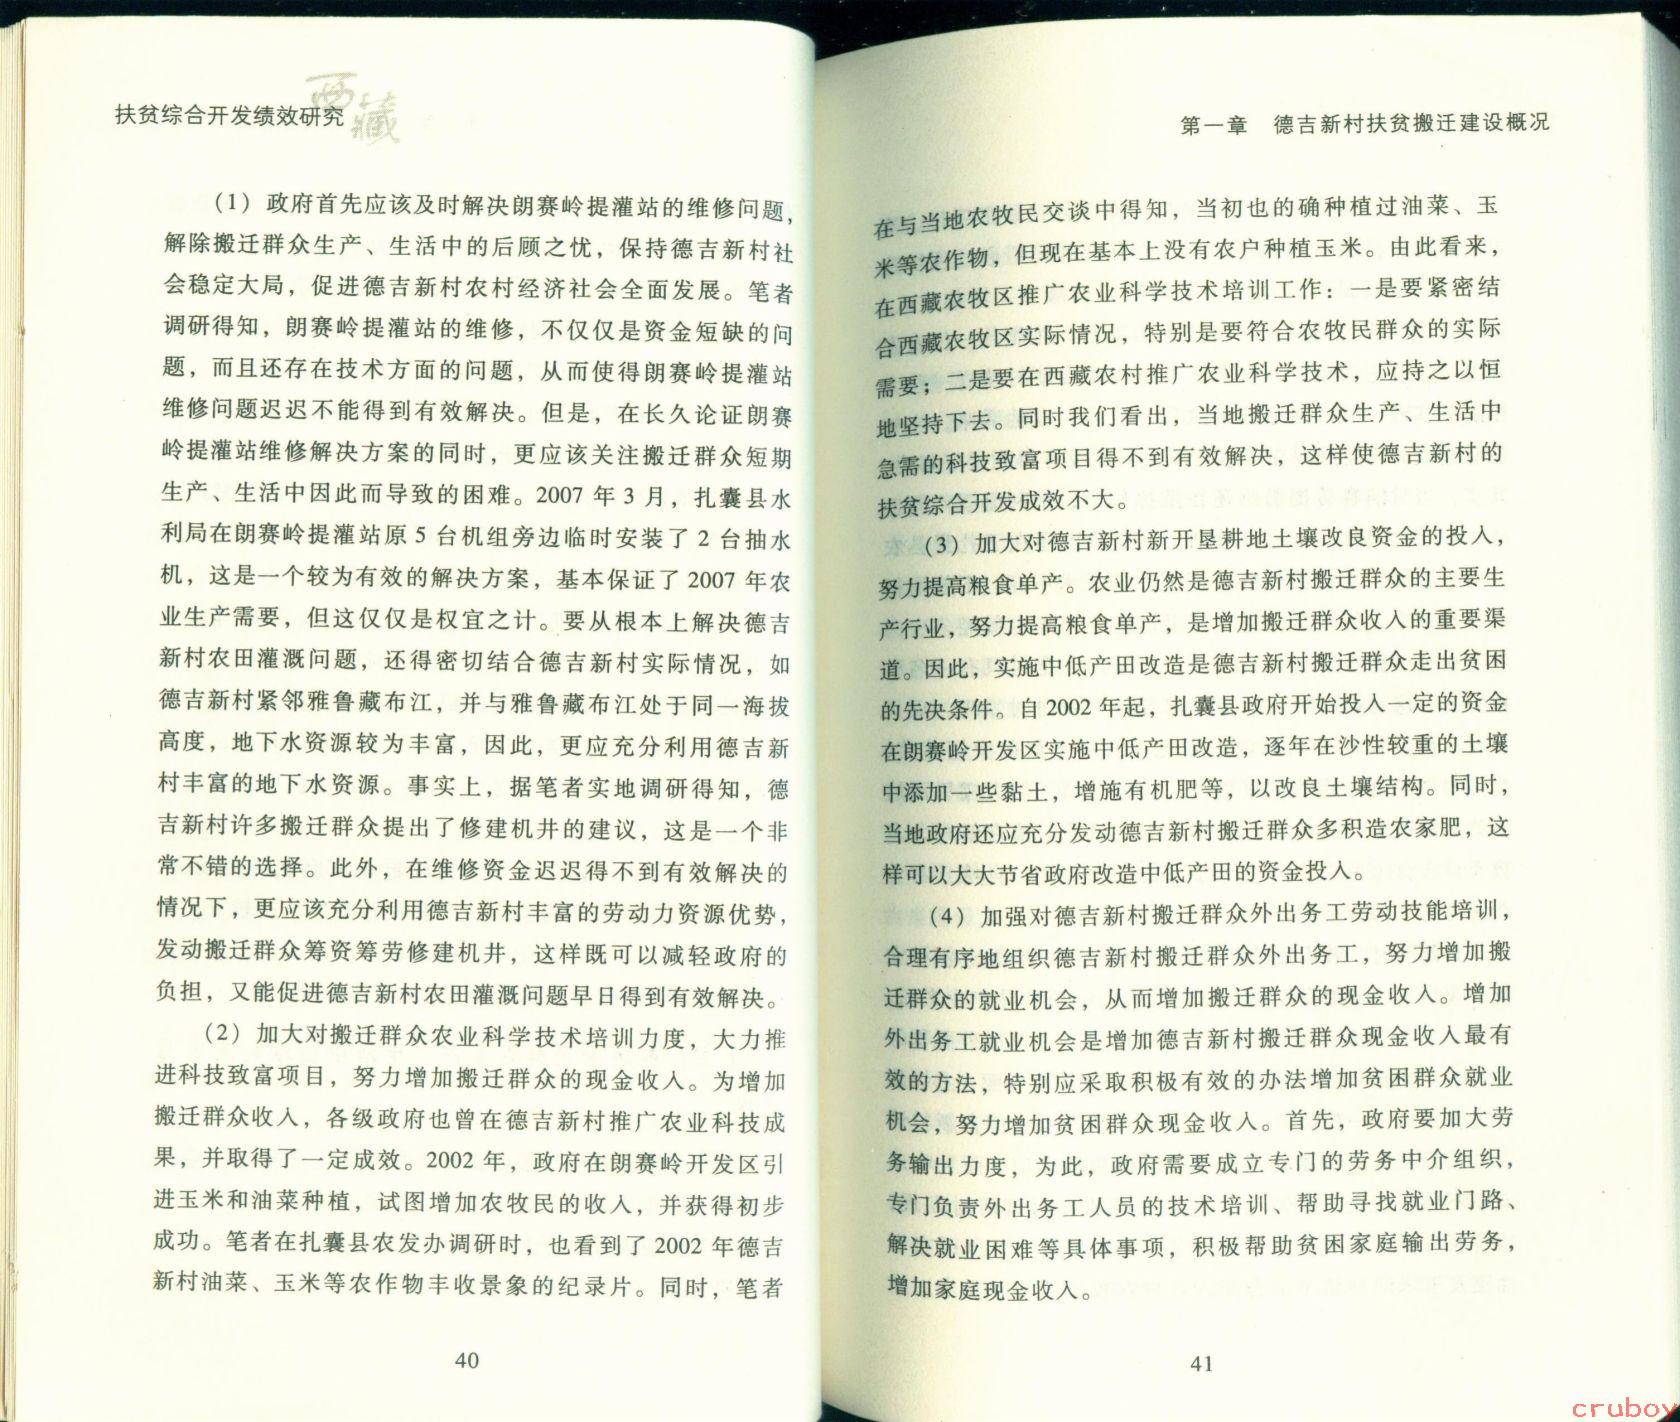 西藏
扶贫综合开发绩效研究
（1）政府首先应该及时解决朗赛岭提灌站的维修问题，
解除搬迁群众生产、生活中的后顾之忧，保持德吉新村社
会稳定大局，促进德吉新村农村经济社会全面发展。笔者
调研得知，朗赛岭提灌站的维修，不仅仅是资金短缺的问
题，而且还存在技术方面的问题，从而使得朗赛岭提灌站
维修问题迟迟不能得到有效解决。但是，在长久论证朗赛
岭提灌站维修解决方案的同时，更应该关注搬迁群众短期
生产、生活中因此而导致的困难。2007 年 3 月，扎囊县水
利局在朗赛岭提灌站原 5 台机组旁边临时安装了 2 台抽水
机，这是一个较为有效的解决方案，基本保证了 2007 年农
业生产需要，但这仅仅是权宜之计。要从根本上解决德吉
新村农田灌溉问题，还得密切结合德吉新村实际情况，如
德吉新村紧邻雅鲁藏布江，并与雅鲁藏布江处于同一海拔
高度，地下水资源较为丰富，因此，更应充分利用德吉新
村丰富的地下水资源。事实上，据笔者实地调研得知，德
吉新村许多搬迁群众提出了修建机井的建议，这是一个非
常不错的选择。此外，在维修资金迟迟得不到有效解决的
情况下，更应该充分利用德吉新村丰富的劳动力资源优势，
发动搬迁群众筹资筹劳修建机井，这样既可以减轻政府的
负担，又能促进德吉新村农田灌溉问题早日得到有效解决。
（2）加大对搬迁群众农业科学技术培训力度，大力推
进科技致富项目，努力增加搬迁群众的现金收入。为增加
搬迁群众收入，各级政府也曾在德吉新村推广农业科技成
果，并取得了一定成效。2002 年，政府在朗赛岭开发区引
进玉米和油菜种植，试图增加农牧民的收入，并获得初步
成功。笔者在扎囊县农发办调研时，也看到了 2002 年德吉
新村油菜、玉米等农作物丰收景象的纪录片。同时，笔者
40
第一章　德吉新村扶贫搬迁建设概况
在与当地农牧民交谈中得知，当初也的确种植过油菜、玉
米等农作物，但现在基本上没有农户种植玉米。由此看来，
在西藏农牧区推广农业科学技术培训工作：一是要紧密结
合西藏农牧区实际情况，特别是要符合农牧民群众的实际
需要；二是要在西藏农村推广农业科学技术，应持之以恒
地坚持下去。同时我们看出，当地搬迁群众生产、生活中
急需的科技致富项目得不到有效解决，这样使德吉新村的
扶贫综合开发成效不大。
（3）加大对德吉新村新开垦耕地土壤改良资金的投入，
努力提高粮食单产。农业仍然是德吉新村搬迁群众的主要生
产行业，努力提高粮食单产，是增加搬迁群众收入的重要渠
道。因此，实施中低产田改造是德吉新村搬迁群众走出贫困
的先决条件。自 2002 年起，扎囊县政府开始投入一定的资金
在朗赛岭开发区实施中低产田改造，逐年在沙性较重的土壤
中添加一些黏土，增施有机肥等，以改良土壤结构。同时，
当地政府还应充分发动德吉新村搬迁群众多积造农家肥，这
样可以大大节省政府改造中低产田的资金投入。
（4）加强对德吉新村搬迁群众外出务工劳动技能培训，
合理有序地组织德吉新村搬迁群众外出务工，努力增加搬
迁群众的就业机会，从而增加搬迁群众的现金收入。增加
外出务工就业机会是增加德吉新村搬迁群众现金收入最有
效的方法，特别应采取积极有效的办法增加贫困群众就业
机会，努力增加贫困群众现金收入。首先，政府要加大劳
务输出力度，为此，政府需要成立专门的劳务中介组织，
专门负责外出务工人员的技术培训、帮助寻找就业门路、
解决就业困难等具体事项，积极帮助贫困家庭输出劳务，
增加家庭现金收入。
41
cruboy